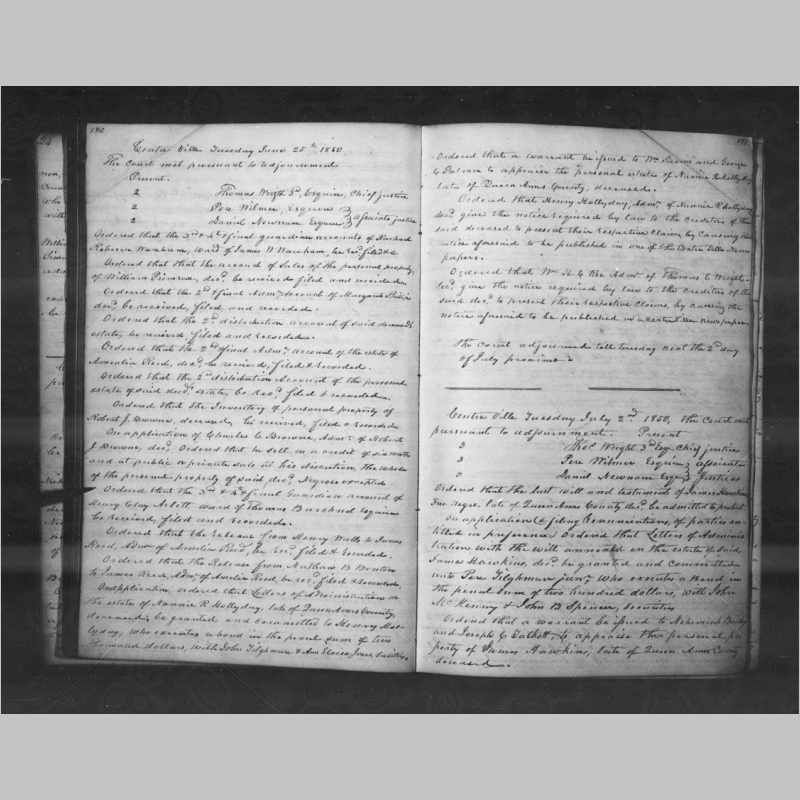 180
Centre Ville Tuesday June 25th 1850
The Court met pursuant to adjournment
Present.
2 Thomas Wright 3d, Esquire, Chief justice
2 Pere Wilmer, Esquire
2 Daniel Newnam Esquire } associate justice
Ordered that the 3rd & 4th & final guardian accounts of
Rebecca Wareham, ward of James W Wareham, be recd filed &c
Ordered that the account of Sales of the personal property
of William, decd. be received filed and recorded.
Ordered that the 2d & final Admrs account of Margaret
decd. be received, filed and recorded.
Ordered that the 2d distribution account of said deceased's
estate, be received filed and recorded.
Ordered that the 2d & final Admrs account of the estate of
Amelia Reed, decd. be received, filed & recorded.
Ordered that the 2d distribution Account of the personal
estate of said decd. estate, be recd. filed & recorded.
Ordered that the Inventory of personal property of
Robert J. Browne, deceased, be received, filed & recorded
On application of Charles C Browne, Admr. of Robert
J. Browne, decd. Ordered that he sell on a credit of six months
and at public or private sale at his discretion, the whole
of the personal property of said decd. Negroes excepted
Ordered that the 3rd & 4th & final Guardian account of
Henry Clay ward of Thomas Esquire
be received, filed and recorded.
Ordered that the release from Henry to James
Reed, Admr. of Amelia Reed, be recd. filed & recorded.
Ordered that the Release from Nathan B
to James Reed, Admr. of Amelia Reed be recd. filed & recorded.
On application, ordered that Letters of Administration on
the estate of Nannie R Hollyday, late of Queen Anns County,
deceased, be granted and committed to Henry Hol-
lyday, who executes a bond in the penal sum of two
thousand dollars, with John Tilghman & Ann
Ordered that a warrant be issued to Wm and George
to appraise the personal estate of Nannie R Hollyday
late of Queen Anns County, deceased.
Ordered that Henry Hollyday, Admr. of Nannie R Hollyday
decd. give the notice required by law to the creditors of the
said deceased to present their respective claims, by causing the
notice aforesaid to be published in one of the Centre Ville News
papers.
Ordered that Wm H Admr. of Thomas C Wright
decd. give the notice required by law to the creditors of the
said decd. to present their respective claims, by causing the
notice aforesaid to be published in a Centre Ville newspaper.
The Court adjourned till tuesday next the 2d day
of July proximo
Centre Ville Tuesday July 2nd, 1850, the Court met
pursuant to adjournment. Present
2 Thos Wright 3d Esq. Chief justice
2 Pere Wilmer Esquire } associate
0 Daniel Newnam Esqr. } Justices
Ordered that the last will and testament of James Hawkins
free negro, late of Queen Anns County decd. be admitted to probate
On application & filing renunciations, of parties en-
titled in preference Ordered that Letters of Adminis
tration with the will annexed on the estate of said
James Hawkins, decd. be granted and committed
unto Pere Tilghman junr. who executes a bond in
the penal sum of two hundred dollars, with John
McKenny & John B Spencer, securities
Ordered that a warrant be issued to
and Joseph C, to appraise the personal pro
perty of James Hawkins, late of Queen Anns County
deceased.